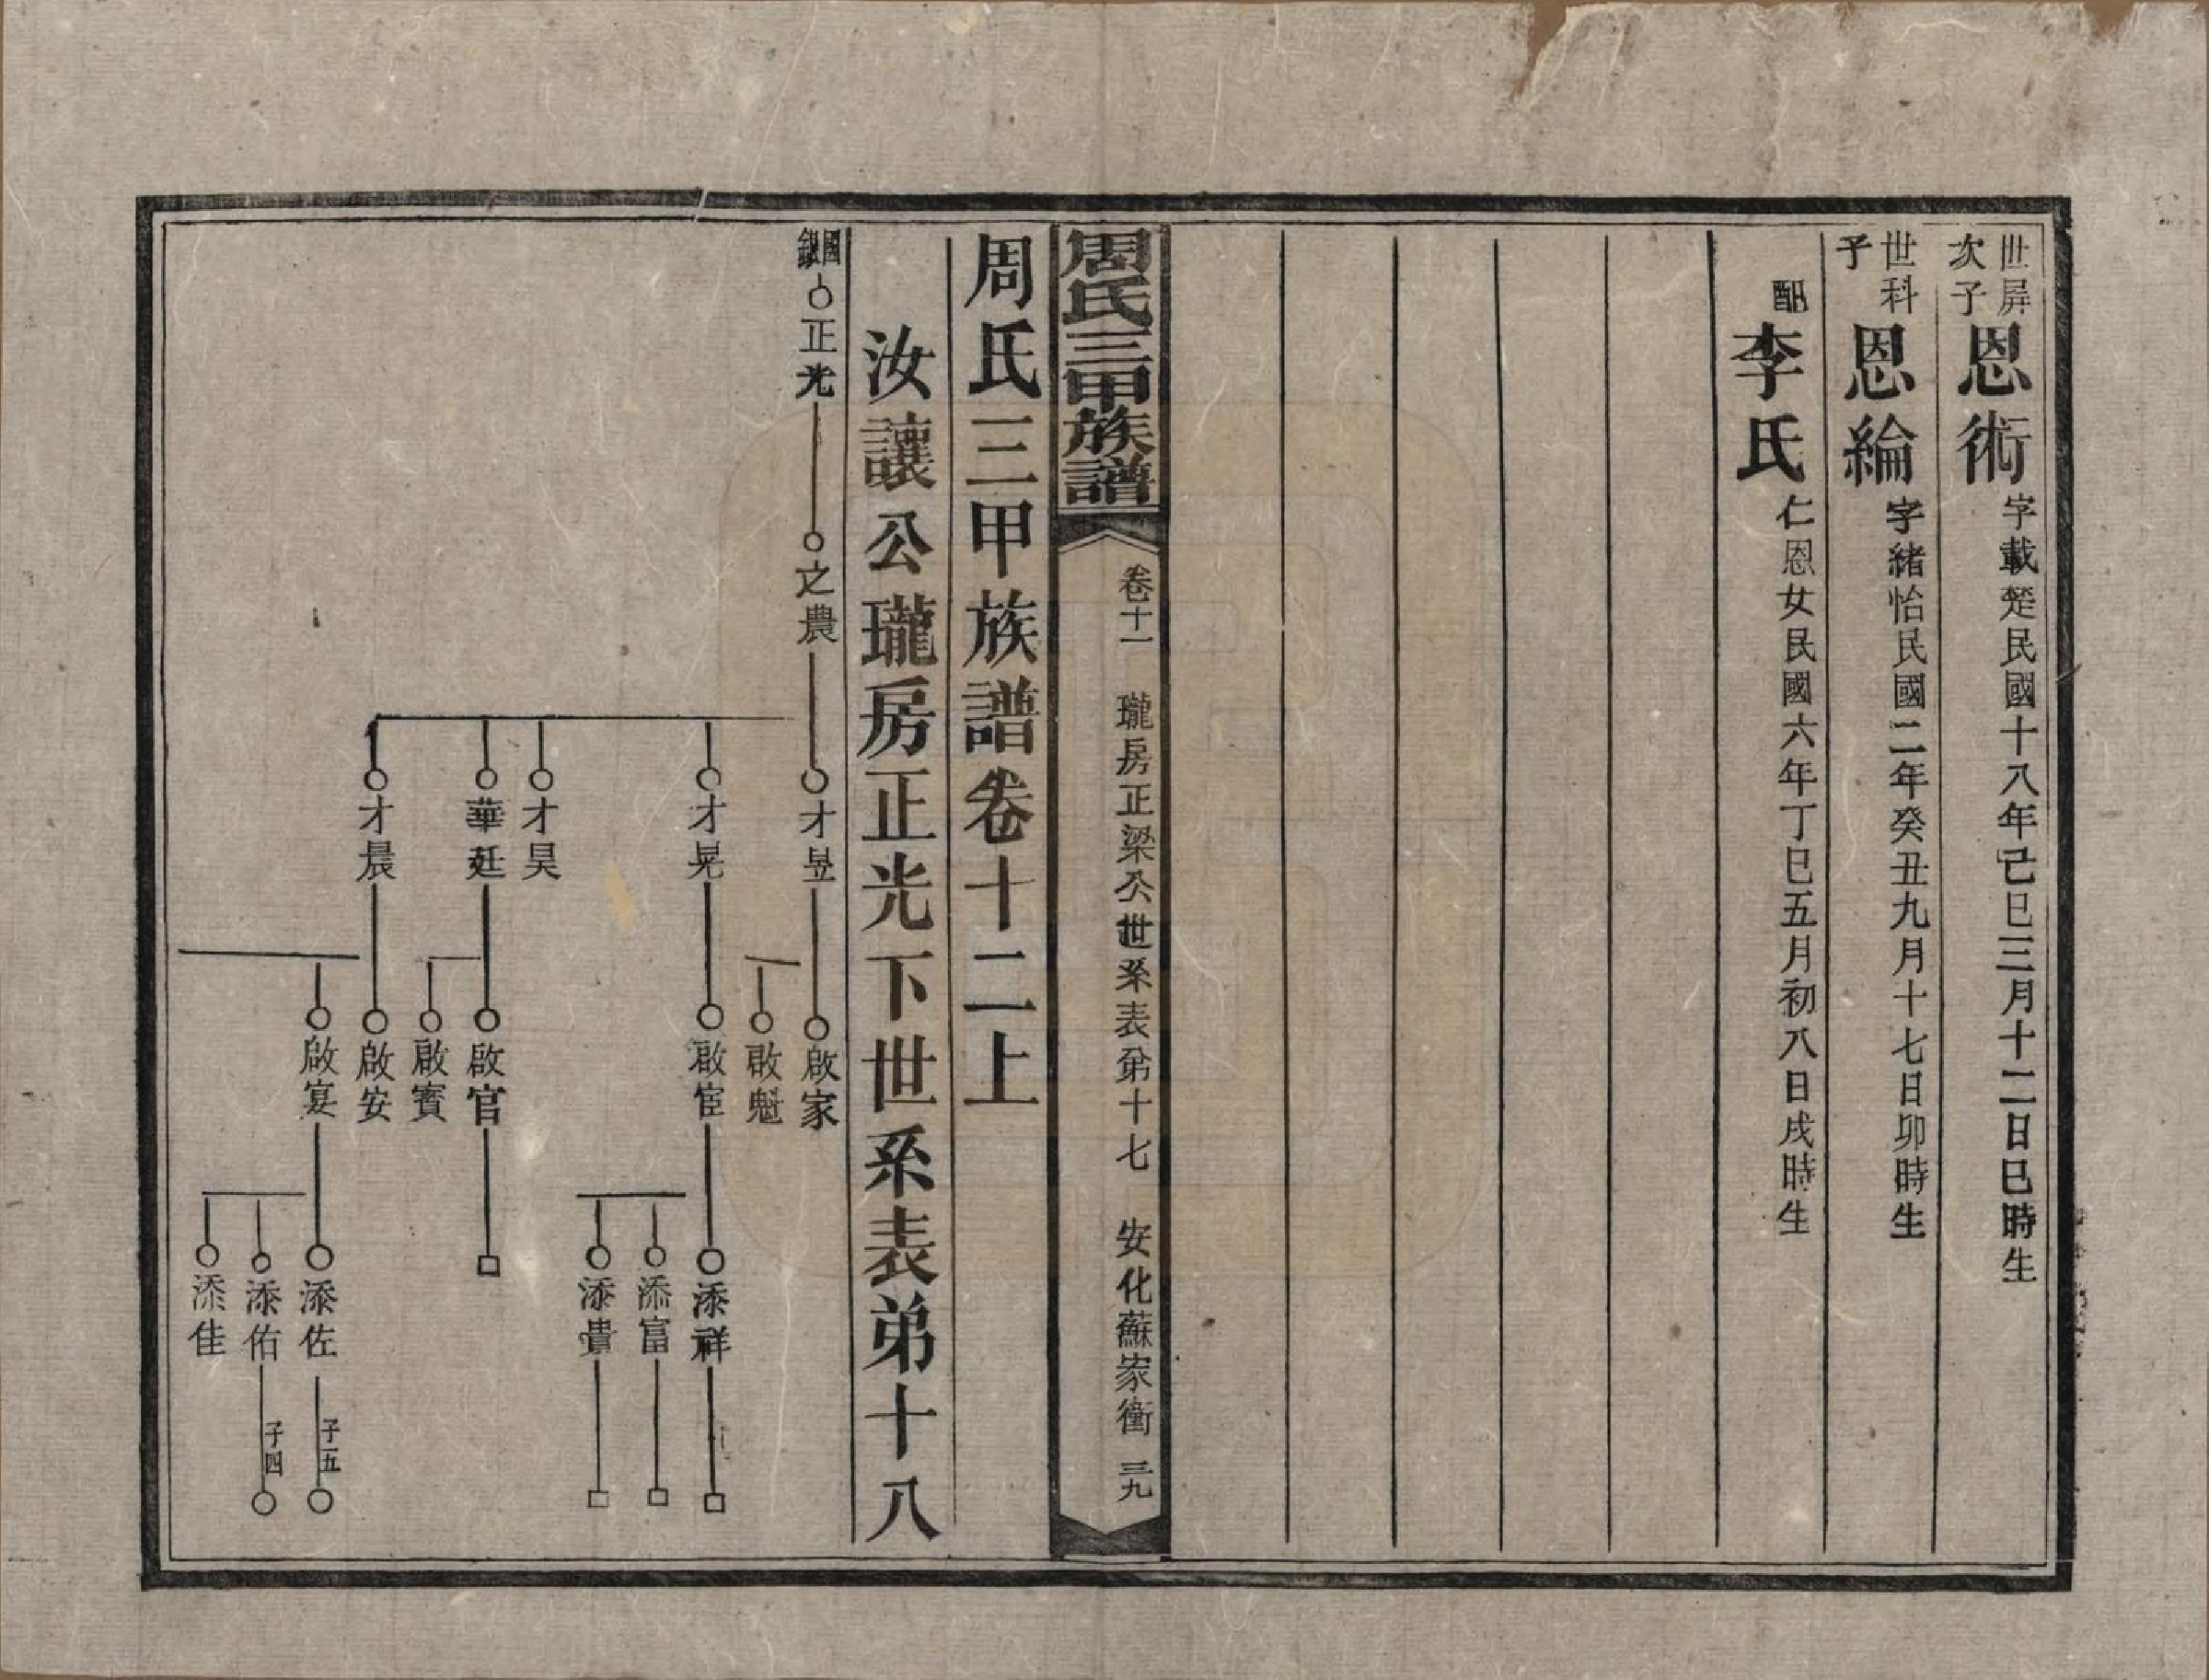 世屏次子
恩術 字載楚民國十八年己巳三月十二日巳時生
世科子
恩綸 字緒怡民國二年癸丑九月十七日卯時生
配
李氏 仁恩女民國六年丁巳五月初八日戌時生
周氏三甲族譜 卷十一 瓏房正梁公世系表第十七 安化蘇家衝 三九
周氏三甲族譜卷十二上
汝讓公瓏房正光下世系表弟十八
國銀 正光 之農 才昱 啟家
啟魁
才晃 啟宦 添祥
添富
添貴
才昊
華廷 啟官
啟賓
才晨 啟安
啟宴 添佐 子五
添佑 子四
添佳